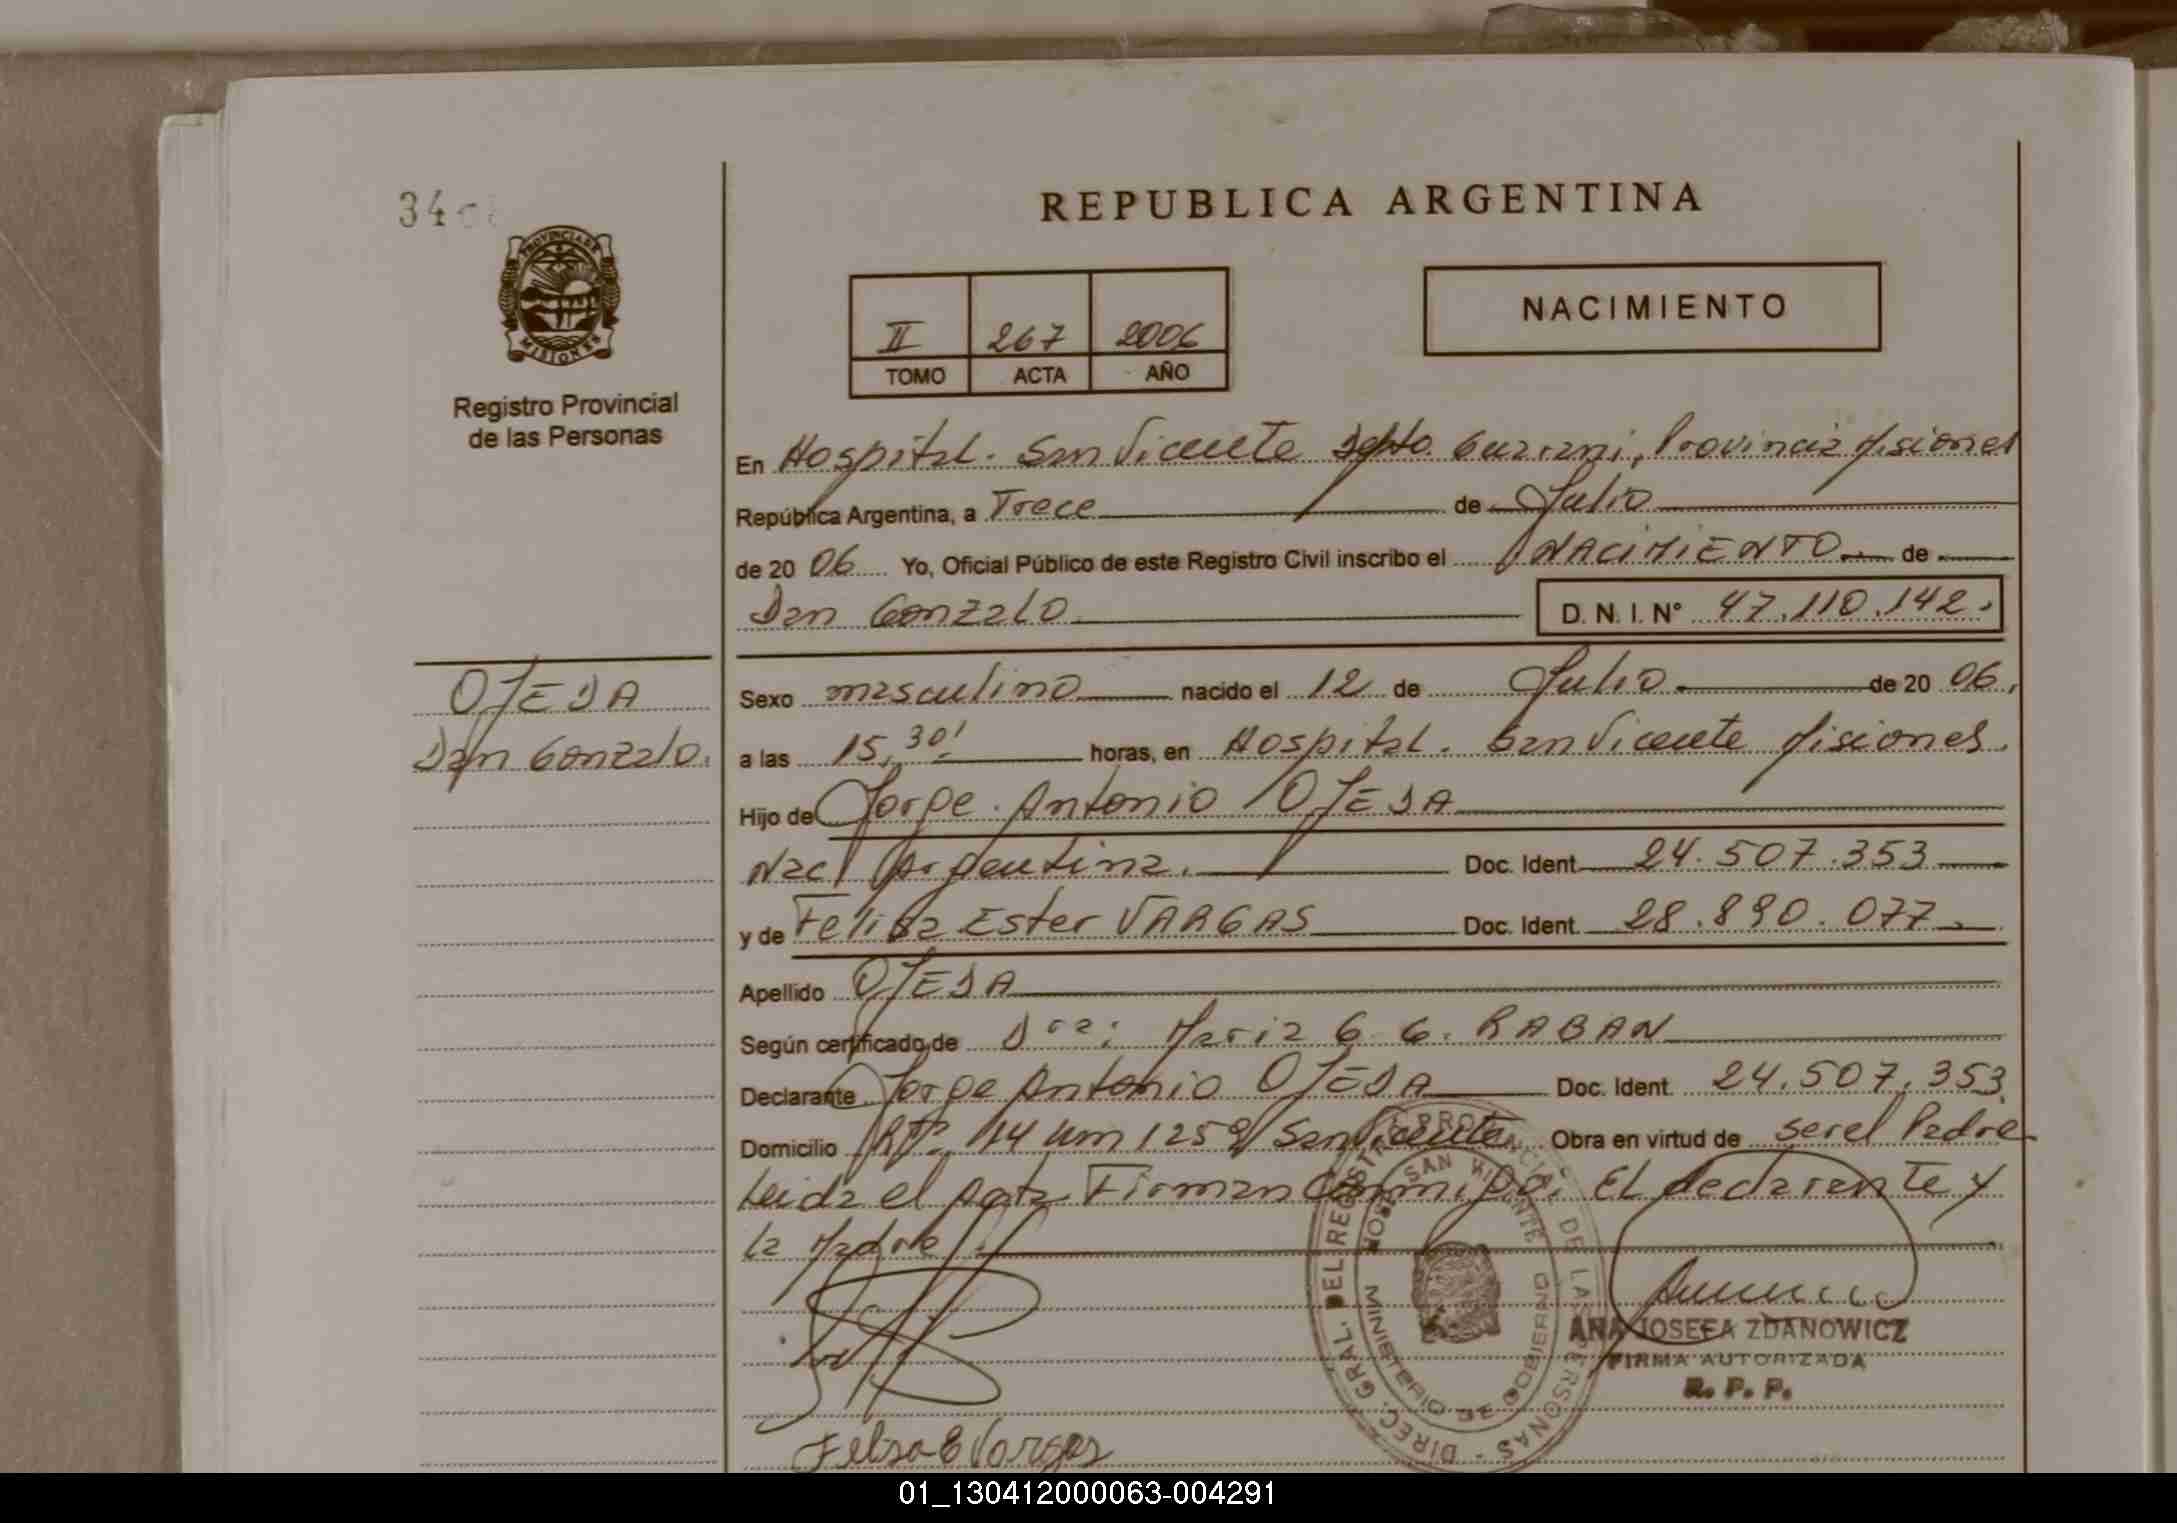 34
PROVINCIA DE
MISIONES
Registro Provincial
de las Personas
REPUBLICA ARGENTINA
II 267 2006
TOMO ACTA AÑO
NACIMIENTO
En Hospital. San Vicente Dpto. Guarani, Provincia Misiones
República Argentina, a Trece de Julio
de 20 06 Yo, Oficial Público de este Registro Civil inscribo el NACIMIENTO de
Dan Gonzalo D. N. I. N° 47.110.142.
OJEDA
Dan Gonzalo.
Sexo masculino nacido el 12 de Julio de 20 06.
a las 15,30' horas, en Hospital. San Vicente Misiones.
Hijo de Jorge Antonio OJEDA
Nac Argentina. Doc. Ident. 24.507.353
y de Ester VARGAS Doc. Ident. 28.890.077.
Apellido OJEDA
Según certificado de Dra: Maria G. G. RABAN
Declarante Jorge Antonio OJEDA Doc. Ident. 24.507.353
Domicilio 14 Km 1259 San Vicente Obra en virtud de ser el Padre
Leida el Acta Firman Conmigo: El declarante y
la Madre
DIREC. GRAL. DEL REGISTRO PROVINCIAL DE LAS PERSONAS
HOSP. SAN VICENTE
MINISTERIO DE GOBIERNO
ANA JOSEFA ZDANOWICZ
FIRMA AUTORIZADA
R. P. P.
Vargas
01_130412000063-004291